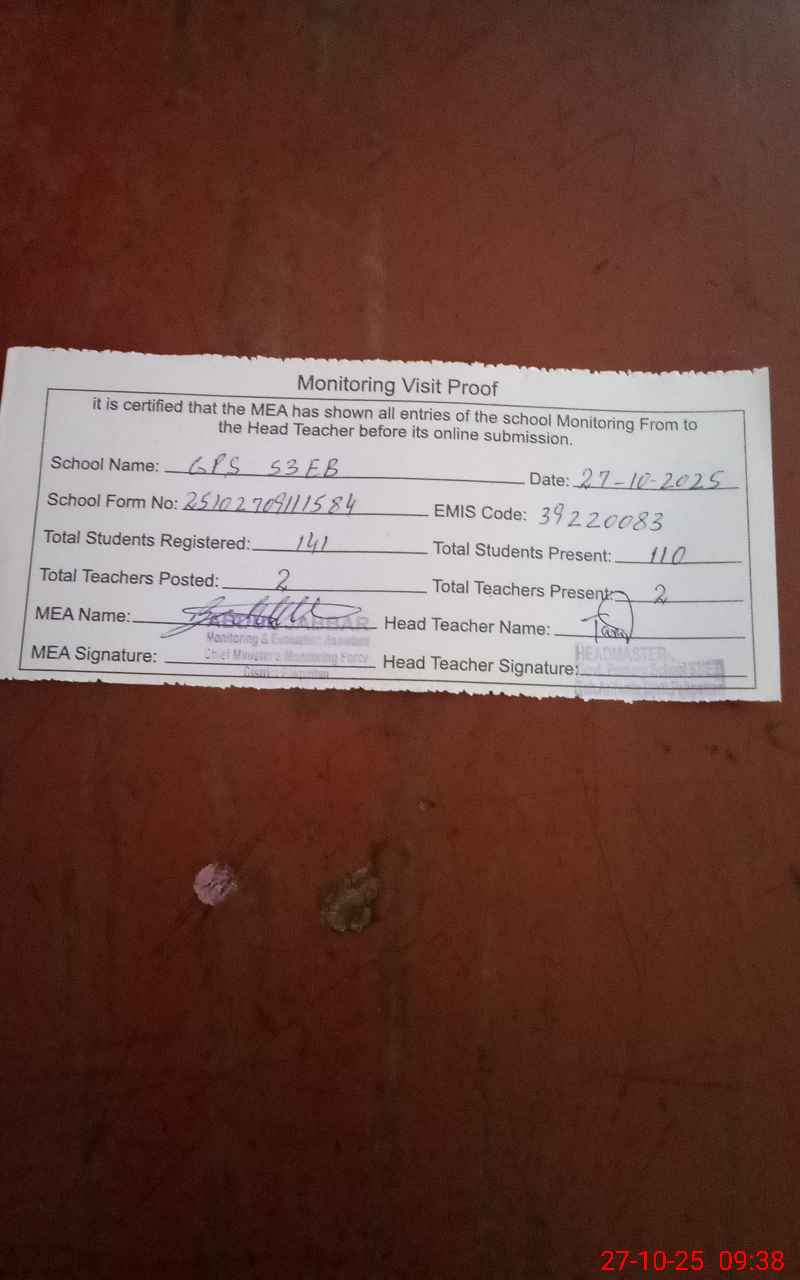 Monitoring Visit Proof
it is certified that the MEA has shown all entries of the school Monitoring From to
the Head Teacher before its online submission.
School Name: GPS 53EB Date: 27-10-2025
School Form No: 25102709111584 EMIS Code: 39220083
Total Students Registered: 141 Total Students Present: 110
Total Teachers Posted: 2 Total Teachers Present: 2
MEA Name: JABBAR Head Teacher Name:
Monitoring & Evaluation Assistant
MEA Signature: Chief Minister's Monitoring Force Head Teacher Signature: HEADMASTER
27-10-25 09:38